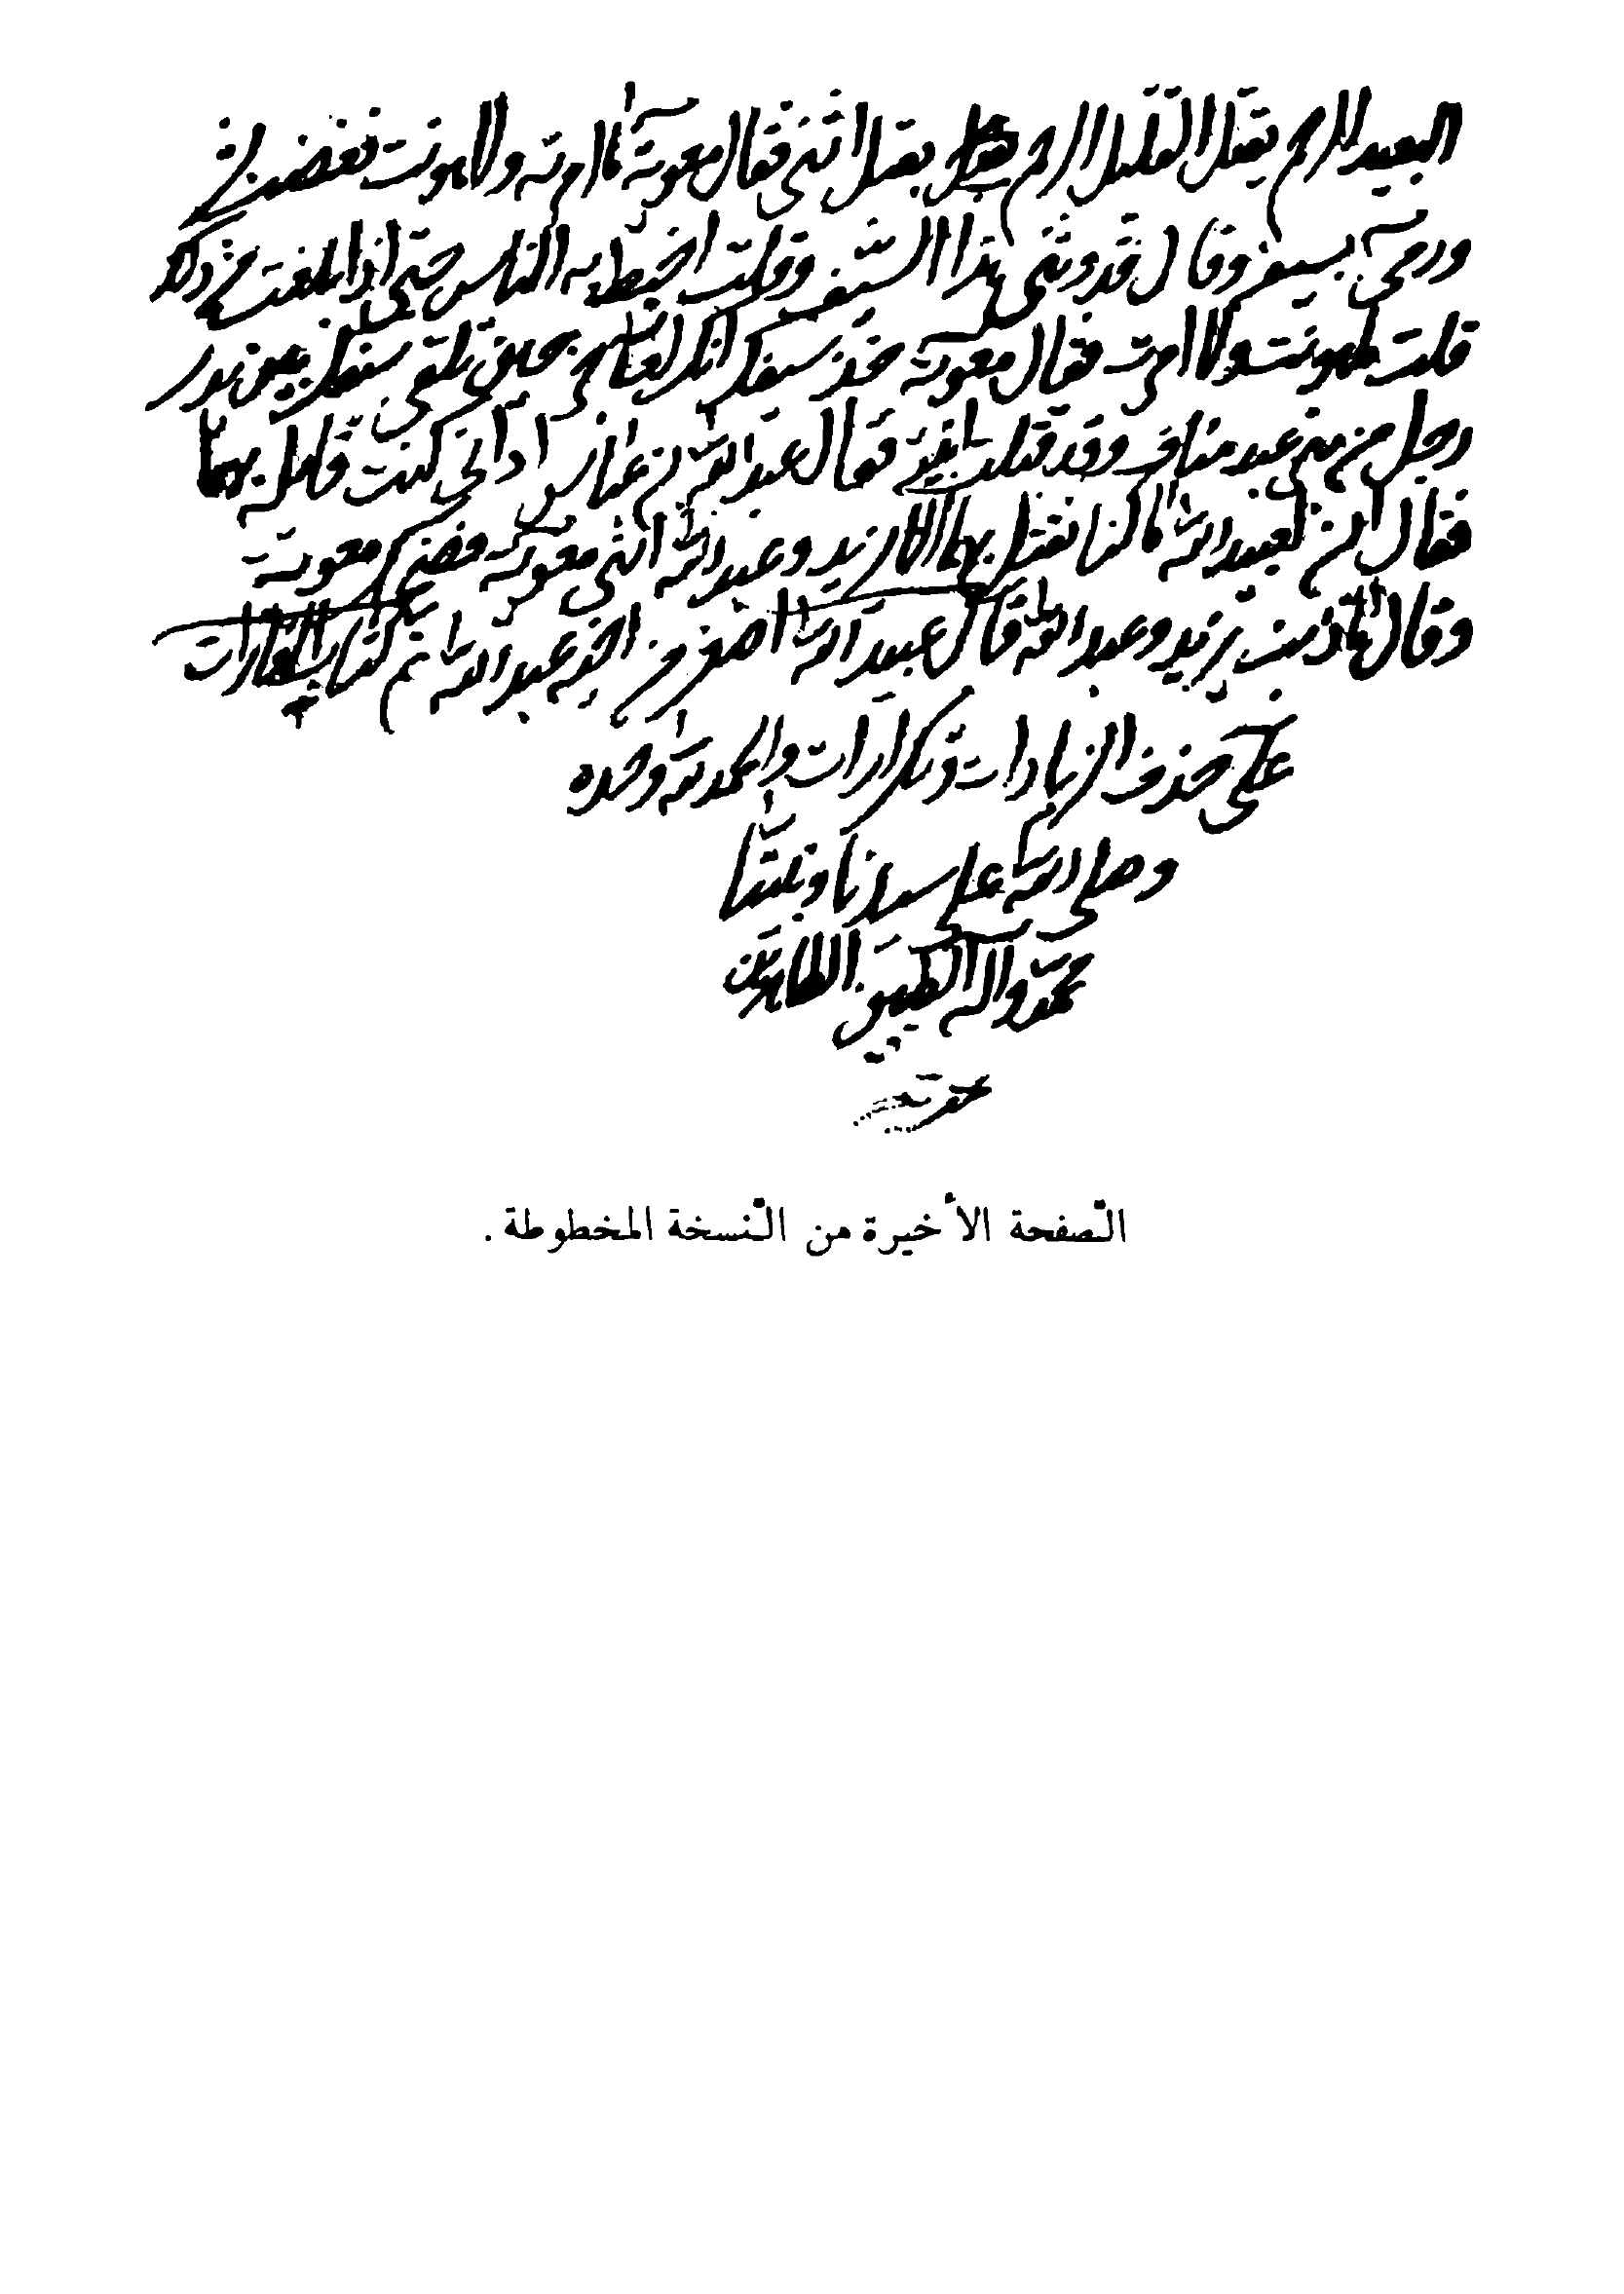 البعيد الرحم يقتل القليل الرحم يقتل اثنى فقال معوية ما امرته ولا هويت فغضب بسر
ورمى بسيفه وقال قلدوتنى هذا السيف وقلت اخبط به الناس حتى اذا بلغت من ذلك
قلت ما هويت ولا امرت فقال معوية خذ سيفك انك لعاجز حين تلقى سيفك بين يدى
رجل من بنى عبد مناف وقد قتلت ابنيه فقال عبيد الله بن عباس كنت قاتله بهما
فقال ابن لعبيد الله ما كنا نقتل بهما الا يزيد وعبد الله ابنى معوية فضحك معوية
وقال ما ذنب يزيد وعبد الله قال عبيد الله اصغر من اخيه عبد الله تم كتاب الغارات
على حذف الزيادات وتكرارات والحمد لله وحده
وصلى الله على سيدنا ونبينا
محمد واله الطيبين الطاهرين
الصفحة الأخيرة من النسخة المخطوطة.